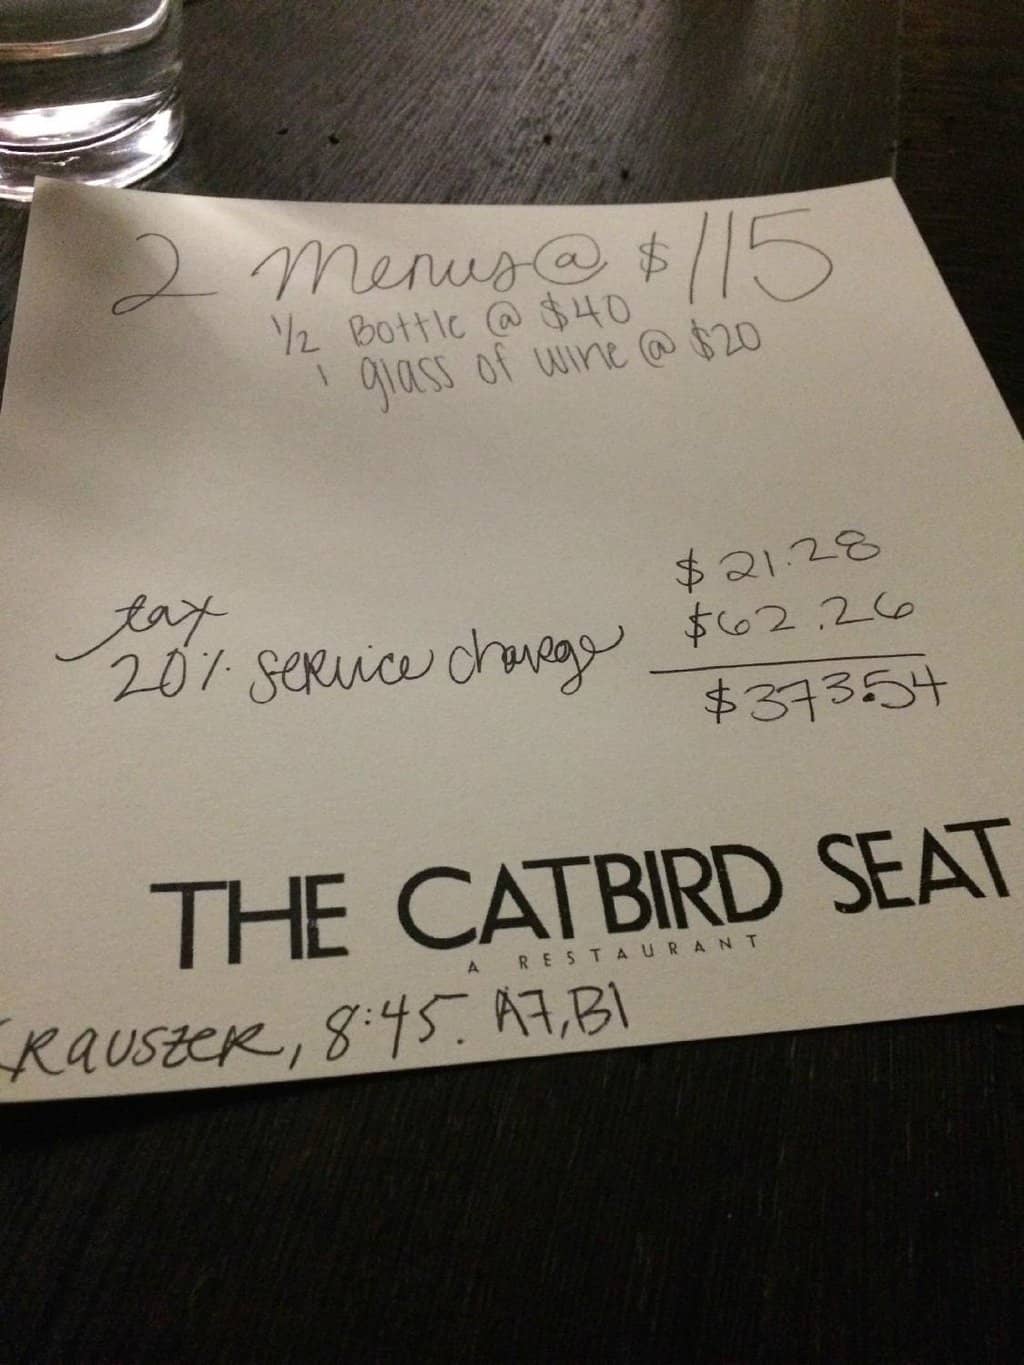 2 Menus @ $115
1/2 Bottle @ $40
1 glass of wine @ $20
tax $21.28
20% service charge $62.26
$373.54
THE CATBIRD SEAT
A RESTAURANT
KRAUSZER, 8:45. A7, B1